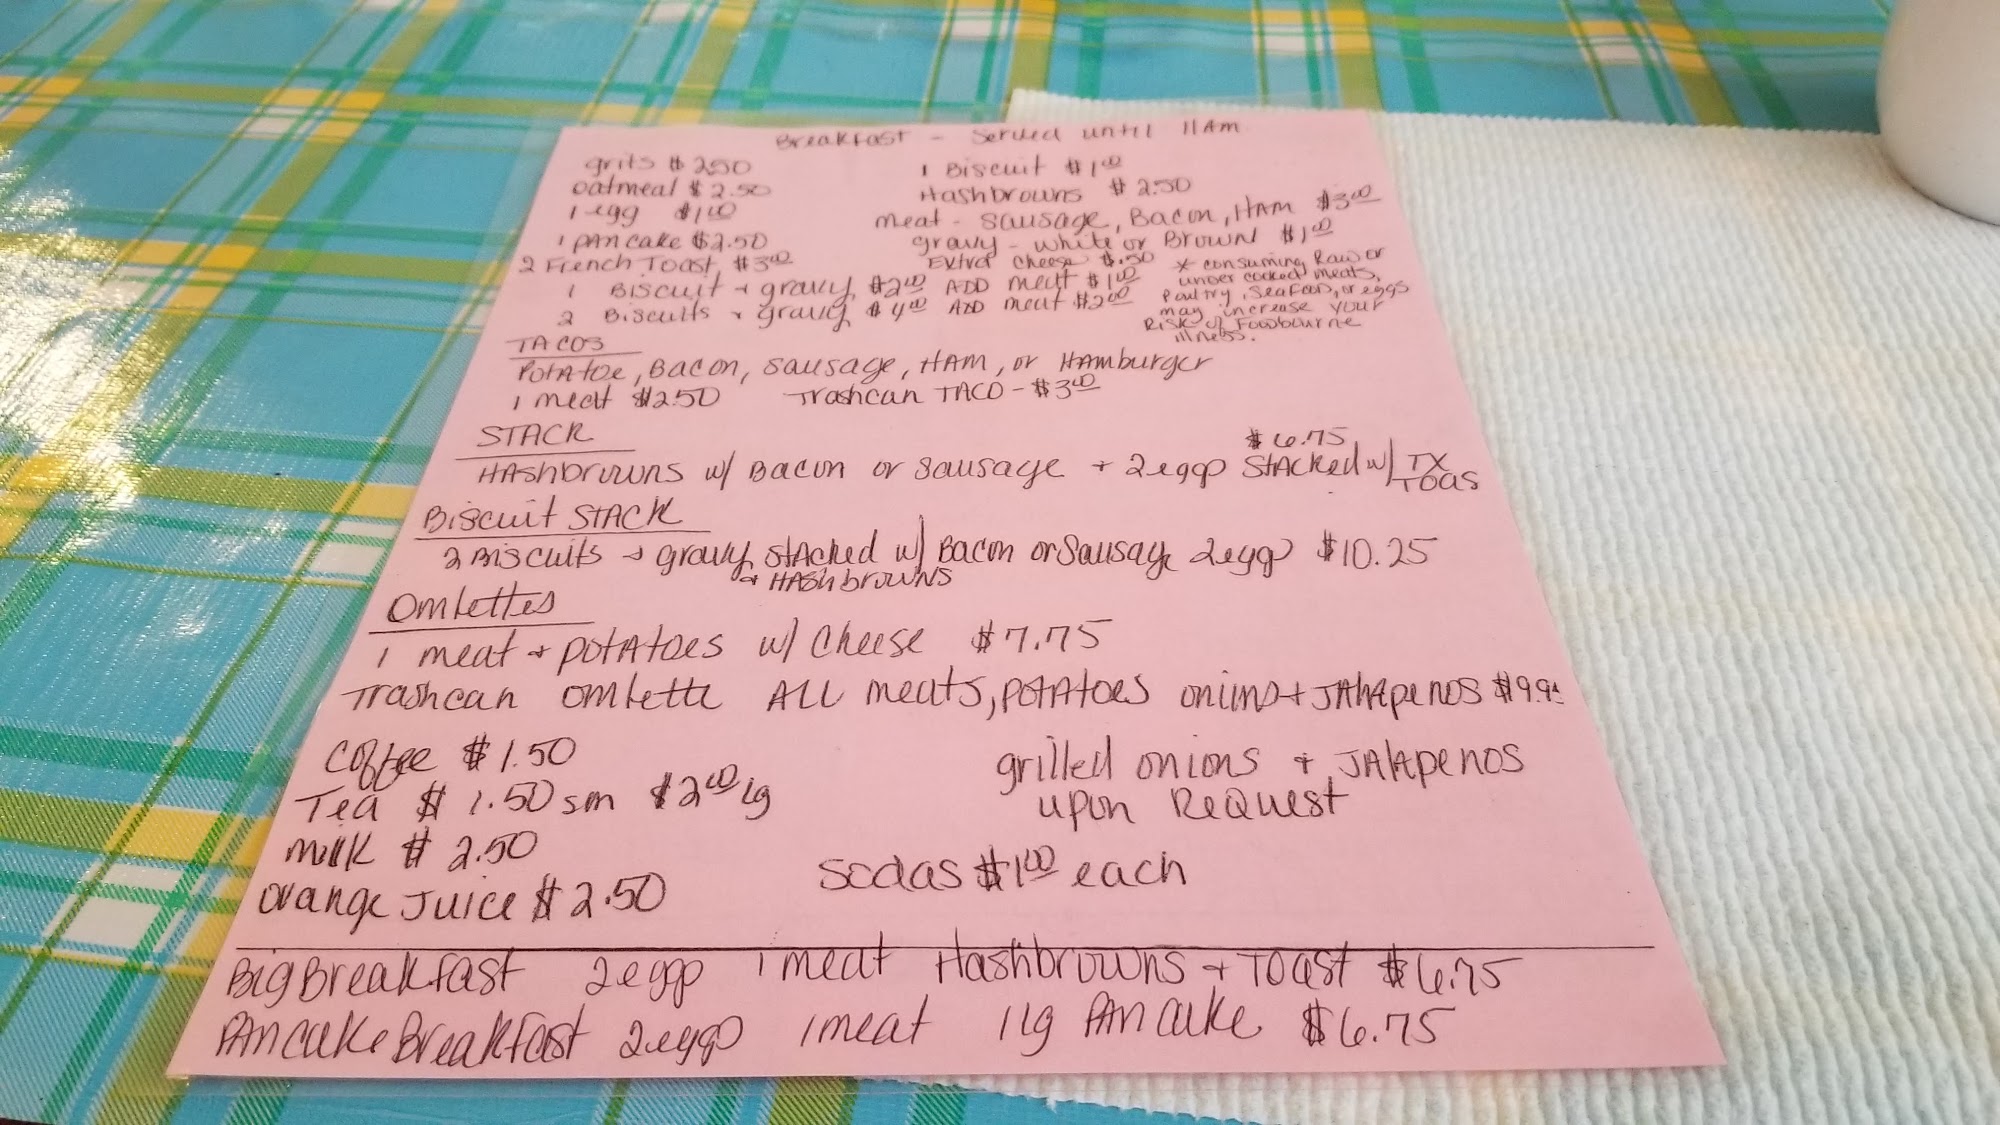 Breakfast - Served until 11 Am
grits $2.50
oatmeal $2.50
1 egg $1.00
1 PANcake $2.50
2 French Toast $3.00
1 Biscuit + gravy $2.00 ADD meat $1.00
2 Biscuits + gravy $4.00 ADD meat $2.00
1 Biscuit $1.00
Hashbrowns $2.50
meat - sausage, Bacon, HAM $3.00
gravy - white or Brown $1.00
Extra cheese $.50
* consuming Raw or
under cooked meats,
Poultry, Seafood, or eggs
may increase your
Risk of Foodbourne
illness.
TACOS
POTATOE, BACON, SAUSAGE, HAM, or HAMburger
1 meat $2.50 Trashcan TACO - $3.00
STACK
$6.75
HAShbrowns w/ BACON or Sausage + 2 eggs STACKed w/ TX
TOAS
Biscuit STACK
2 Biscuits + gravy STACked w/ BACON or Sausage 2 eggs $10.25
+ HASHbrowns
Omlettes
1 meat + POTATOES w/ Cheese $7.75
Trashcan Omlette ALL meats, POTATOES onions + JALApenos $9.9
Coffee $1.50
Tea $1.50 sm $2.00 lg
milk $2.50
orange Juice $2.50
grilled onions + JALApenos
upon Request
Sodas $1.00 each
Big Breakfast 2 eggs 1 meat Hashbrowns + TOAST $6.75
PANcake Breakfast 2 eggs 1 meat 1 lg PANcake $6.75